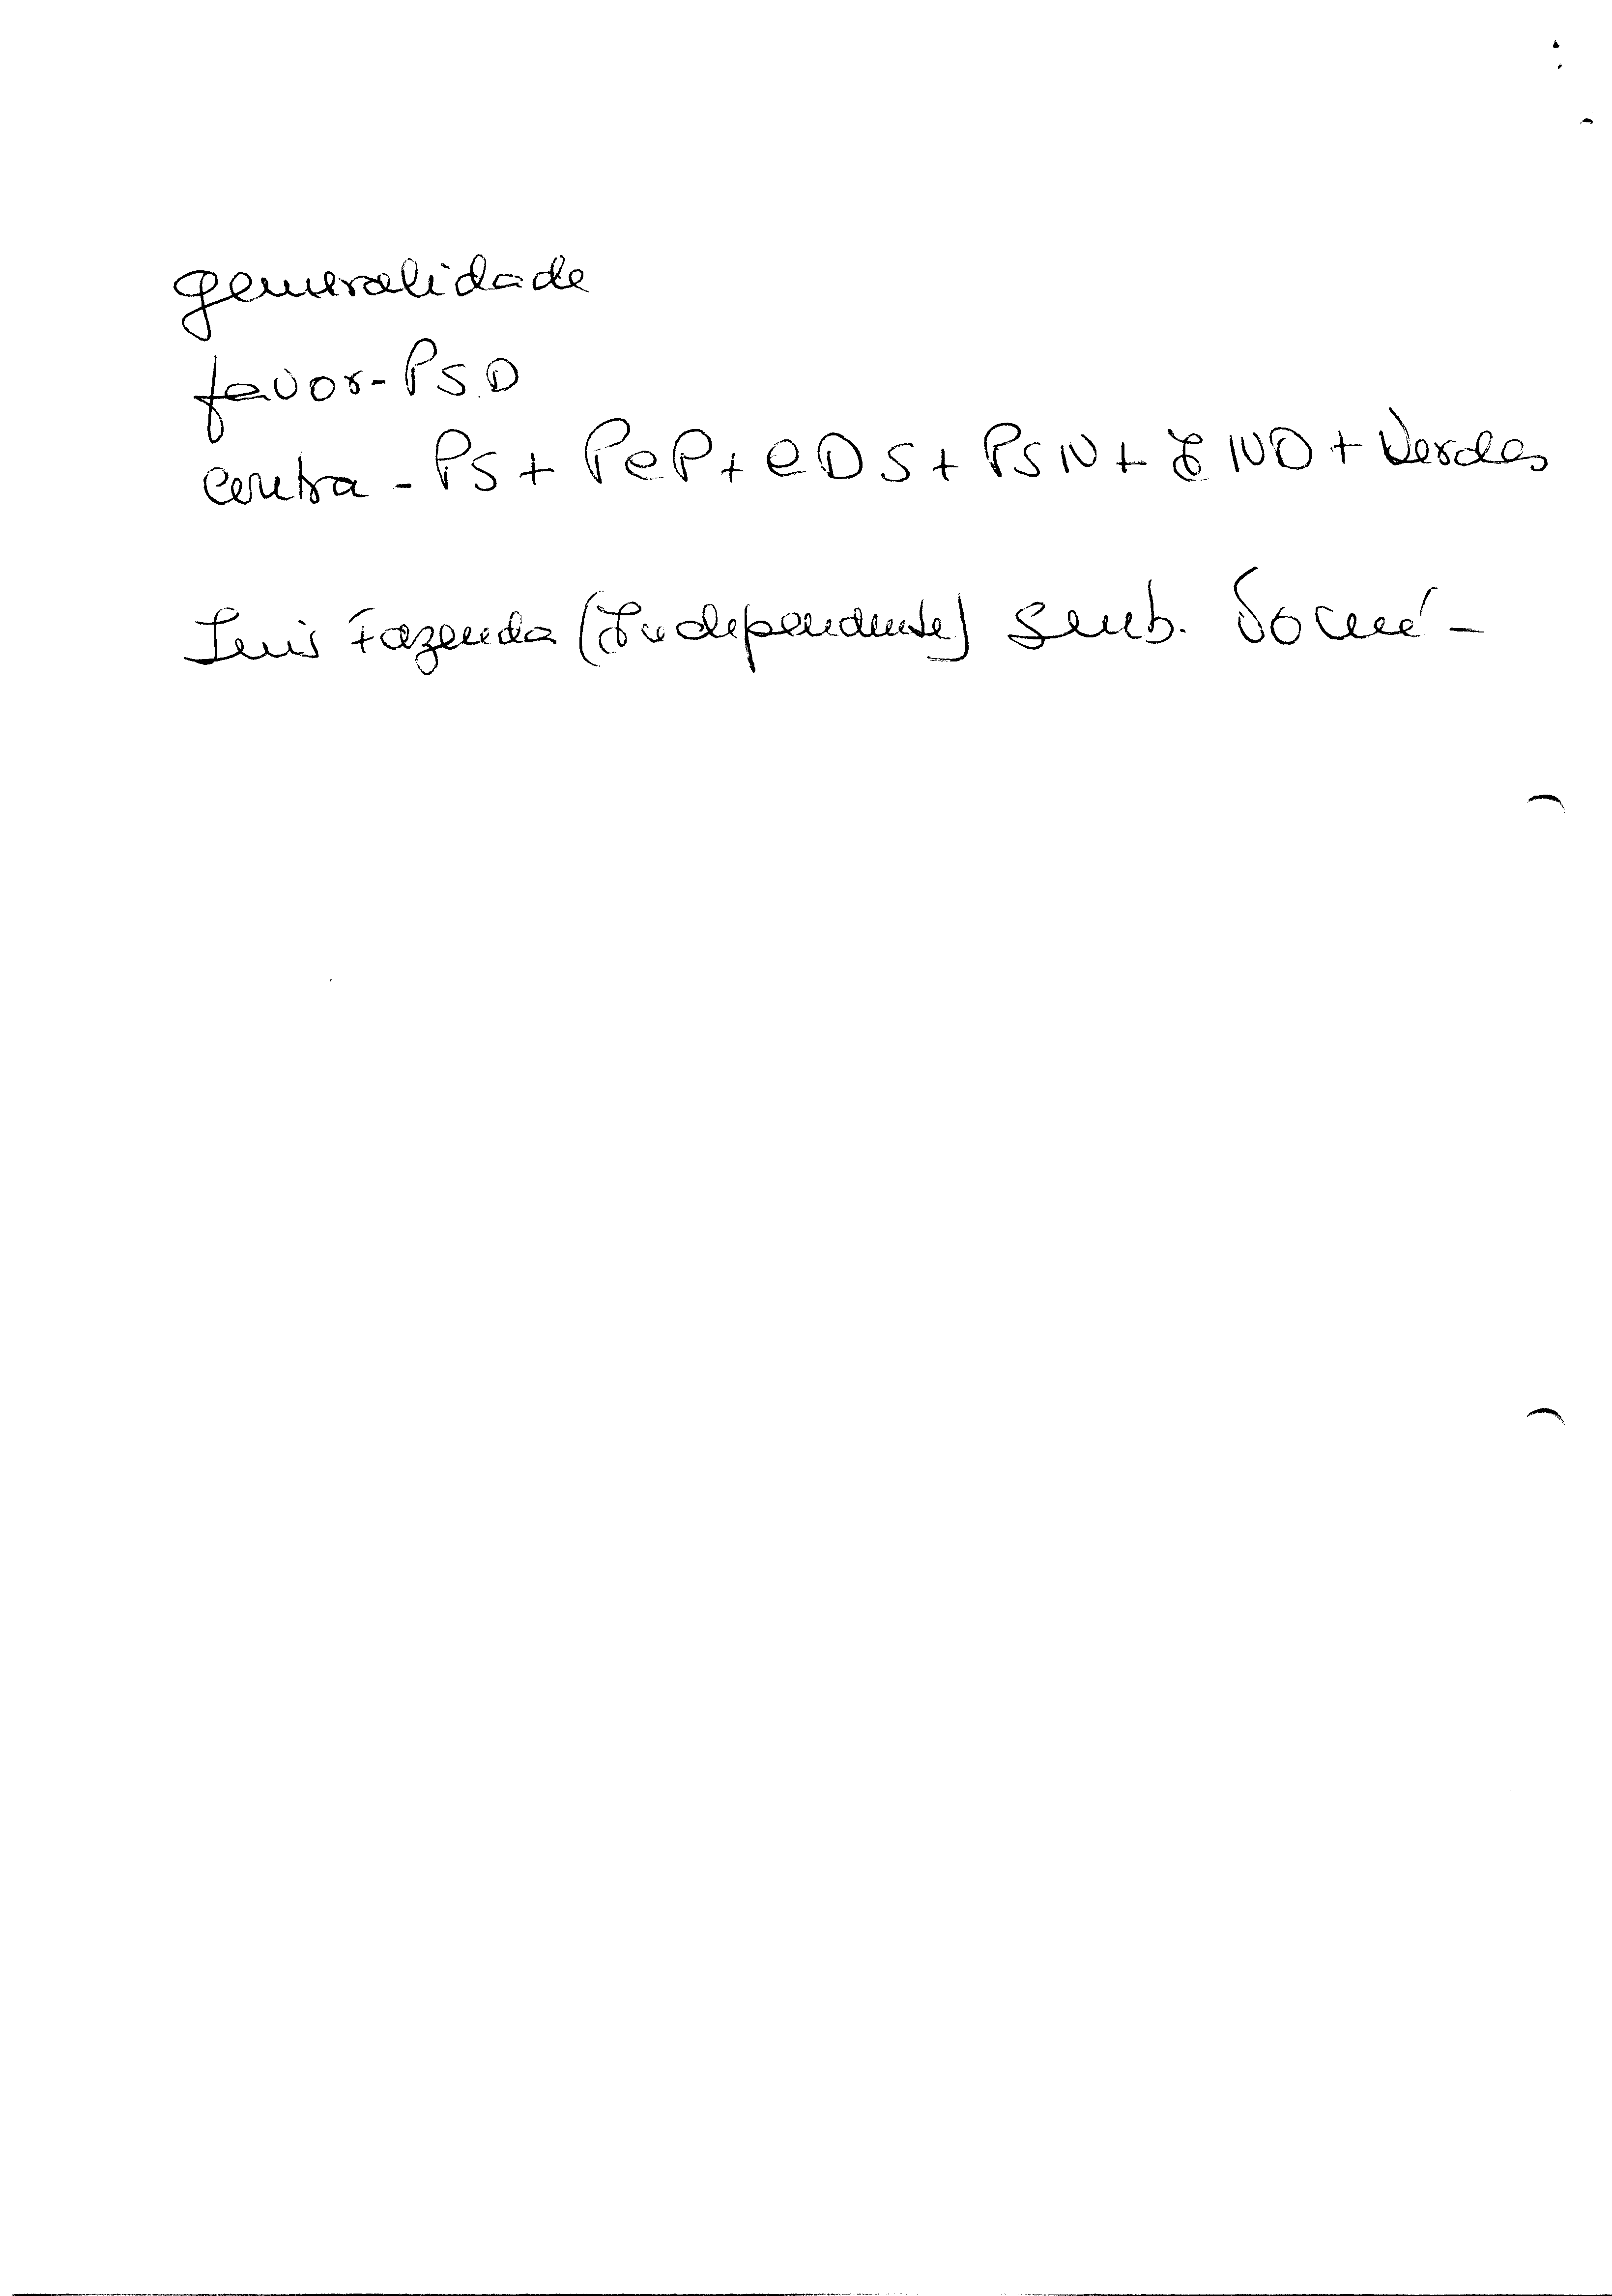 generalidade
favor - PSD
contra - PS + PCP + CDS + PSN + IND + Verdes
Luis Fazenda (Independente)